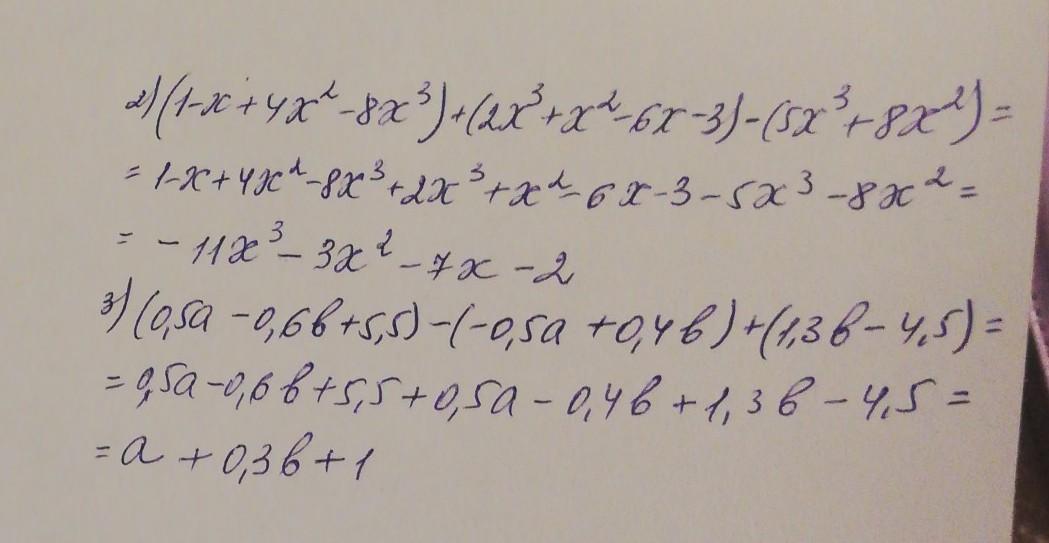 2) (1-x+4x²-8x³)+(2x³+x²-6x-3)-(5x³+8x²)=
= 1-x+4x²-8x³+2x³+x²-6x-3-5x³-8x²=
= -11x³-3x²-7x-2
3) (0,5a-0,6b+5,5)-(-0,5a+0,4b)+(1,3b-4,5)=
= 0,5a-0,6b+5,5+0,5a-0,4b+1,3b-4,5=
= a+0,3b+1